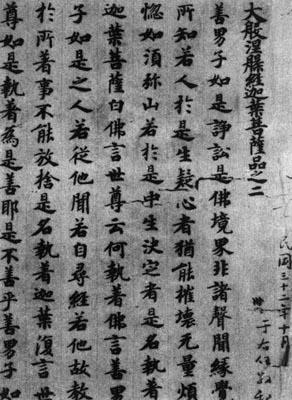 大般涅槃經迦葉菩薩品之二
善男子如是諍訟是佛境界非諸聲聞緣覺
所知若人於是生疑心者猶能摧壞无量煩
惱如須弥山若於是中生決定者是名執著
迦葉菩薩白佛言世尊云何執著佛言善男
子如是之人若從他聞若自尋經若他故教
於所著事不能放捨是名執著迦葉復言世
尊如是執著為是善耶是不善乎善男子如
民国三十二年十月
于右任